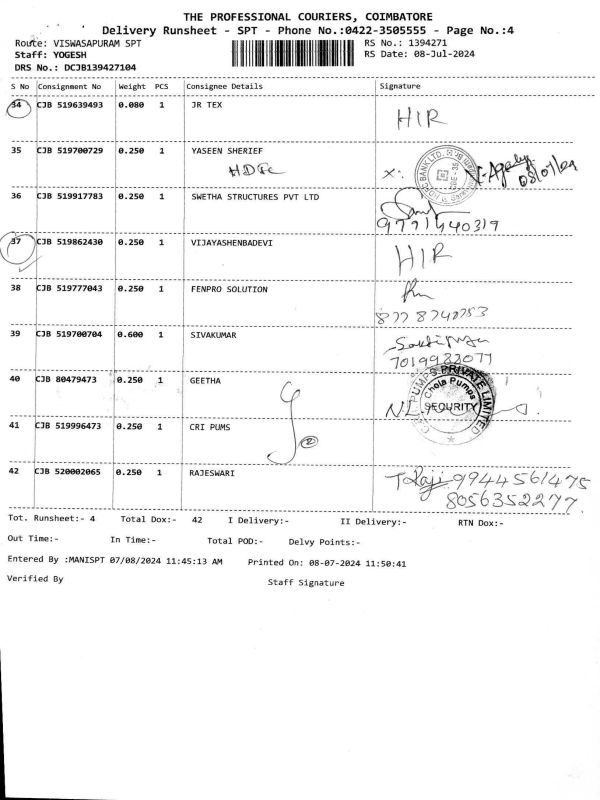 THE PROFESSIONAL COURIERS, COIMBATORE
Delivery Runsheet - SPT - Phone No.:0422-3505555 - Page No.:4
Route: VISWASAPURAM SPT RS No.: 1394271
Staff: YOGESH RS Date: 08-Jul-2024
DRS No.: DCJB139427104
S No Consignment No Weight PCS Consignee Details Signature
34 CJB 519639493 0.080 1 JR TEX HIR
35 CJB 519700729 0.250 1 YASEEN SHERIEF
HDFC X: 08/07/24
36 CJB 519917783 0.250 1 SWETHA STRUCTURES PVT LTD
9791440319
37 CJB 519862430 0.250 1 VIJAYASHENBADEVI HIR
38 CJB 519777043 0.250 1 FENPRO SOLUTION
8778740753
39 CJB 519700704 0.600 1 SIVAKUMAR
7019983077
40 CJB 80479473 0.250 1 GEETHA
PUMPS PRIVATE LIMITED
Chola Pumps
SECURITY
41 CJB 519996473 0.250 1 CRI PUMS
2
42 CJB 520002065 0.250 1 RAJESWARI T Raji 9944561475
8056352277
Tot. Runsheet:- 4 Total Dox:- 42 I Delivery:- II Delivery:- RTN Dox:-
Out Time:- In Time:- Total POD:- Delvy Points:-
Entered By :MANISPT 07/08/2024 11:45:13 AM Printed On: 08-07-2024 11:50:41
Verified By Staff Signature